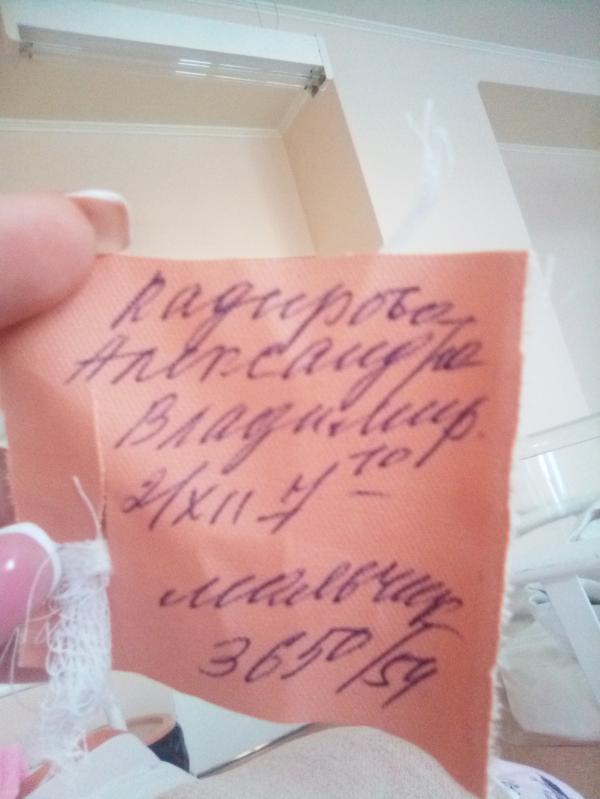 Кадирова
Александра
Владимир.
2/XII 7 10
мальчик
3650/54